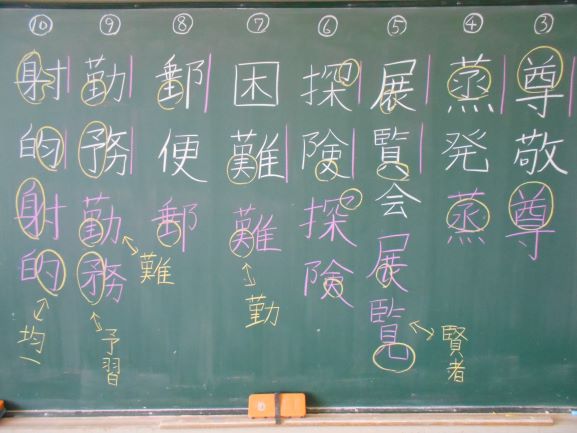 ③
尊敬尊
④
蒸発蒸
⑤
展覧会展覧
賢者
⑥
探険探険
⑦
困難難
勤
⑧
郵便郵
難
⑨
勤務勤務
予習
⑩
射的射的
均一